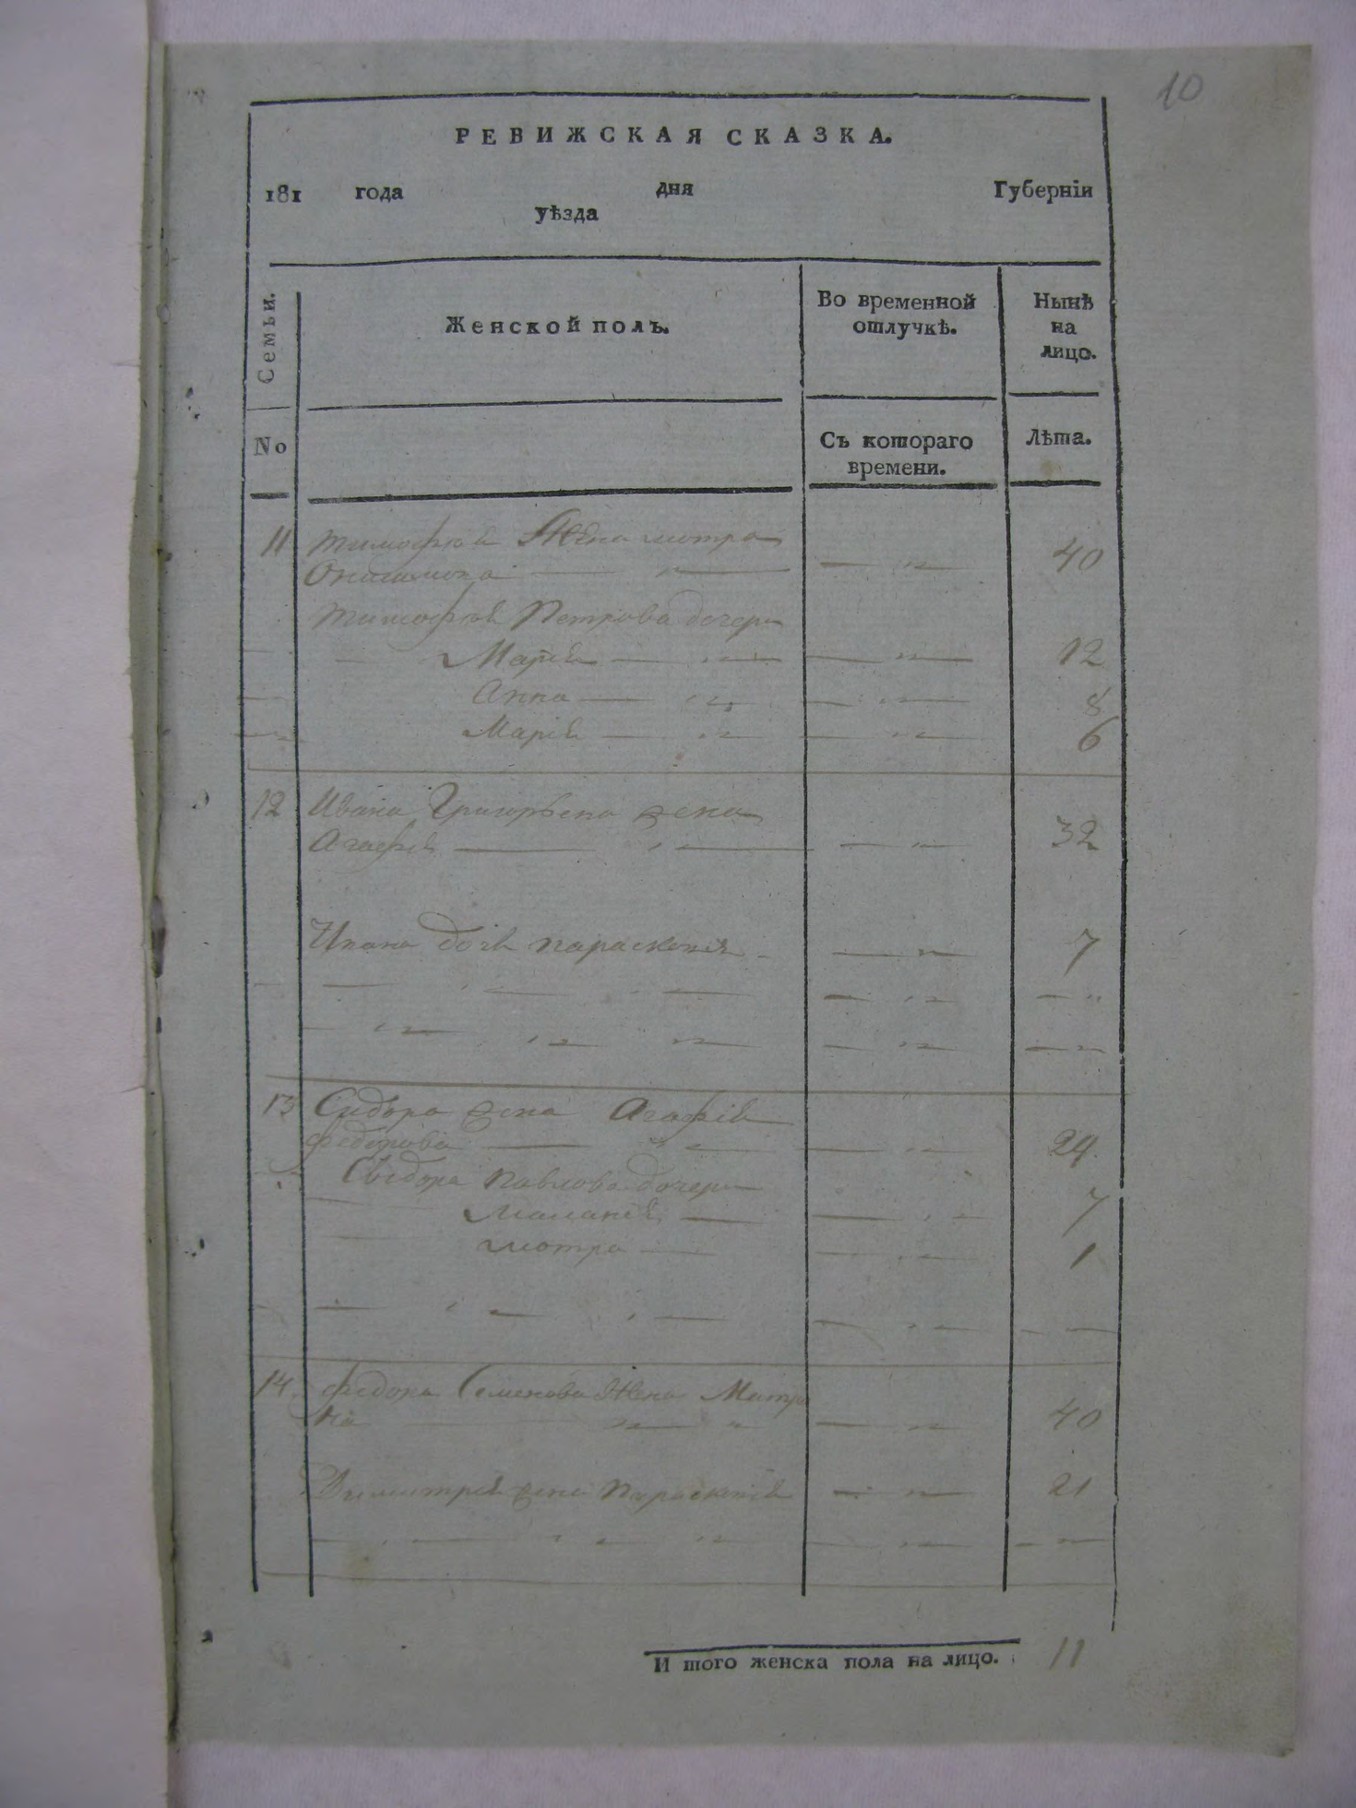 10
РЕВИЖСКАЯ СКАЗКА.
181 года дня Губерніи
уѣзда
Семьи.
Женской полъ.
Во временной отлучкѣ.
Нынѣ на лицо.
No
Съ котораго времени.
Лѣта.
11 Тимофея Жена мотра
40
Тимофея Петрова дочери
Марія 12
Анна 8
Марія 6
12 Ивана Григорьева жена
Агафія 32
Ивана дочь параскевія 7
13 Сидора жена Агафія
федорова 24.
Сидора Павлова дочери
Маланія 7
мотра 1
14 федора Семенова Жена Матро
на 40
Димитрія жена Параскевія 21
И того женска пола на лицо. 11